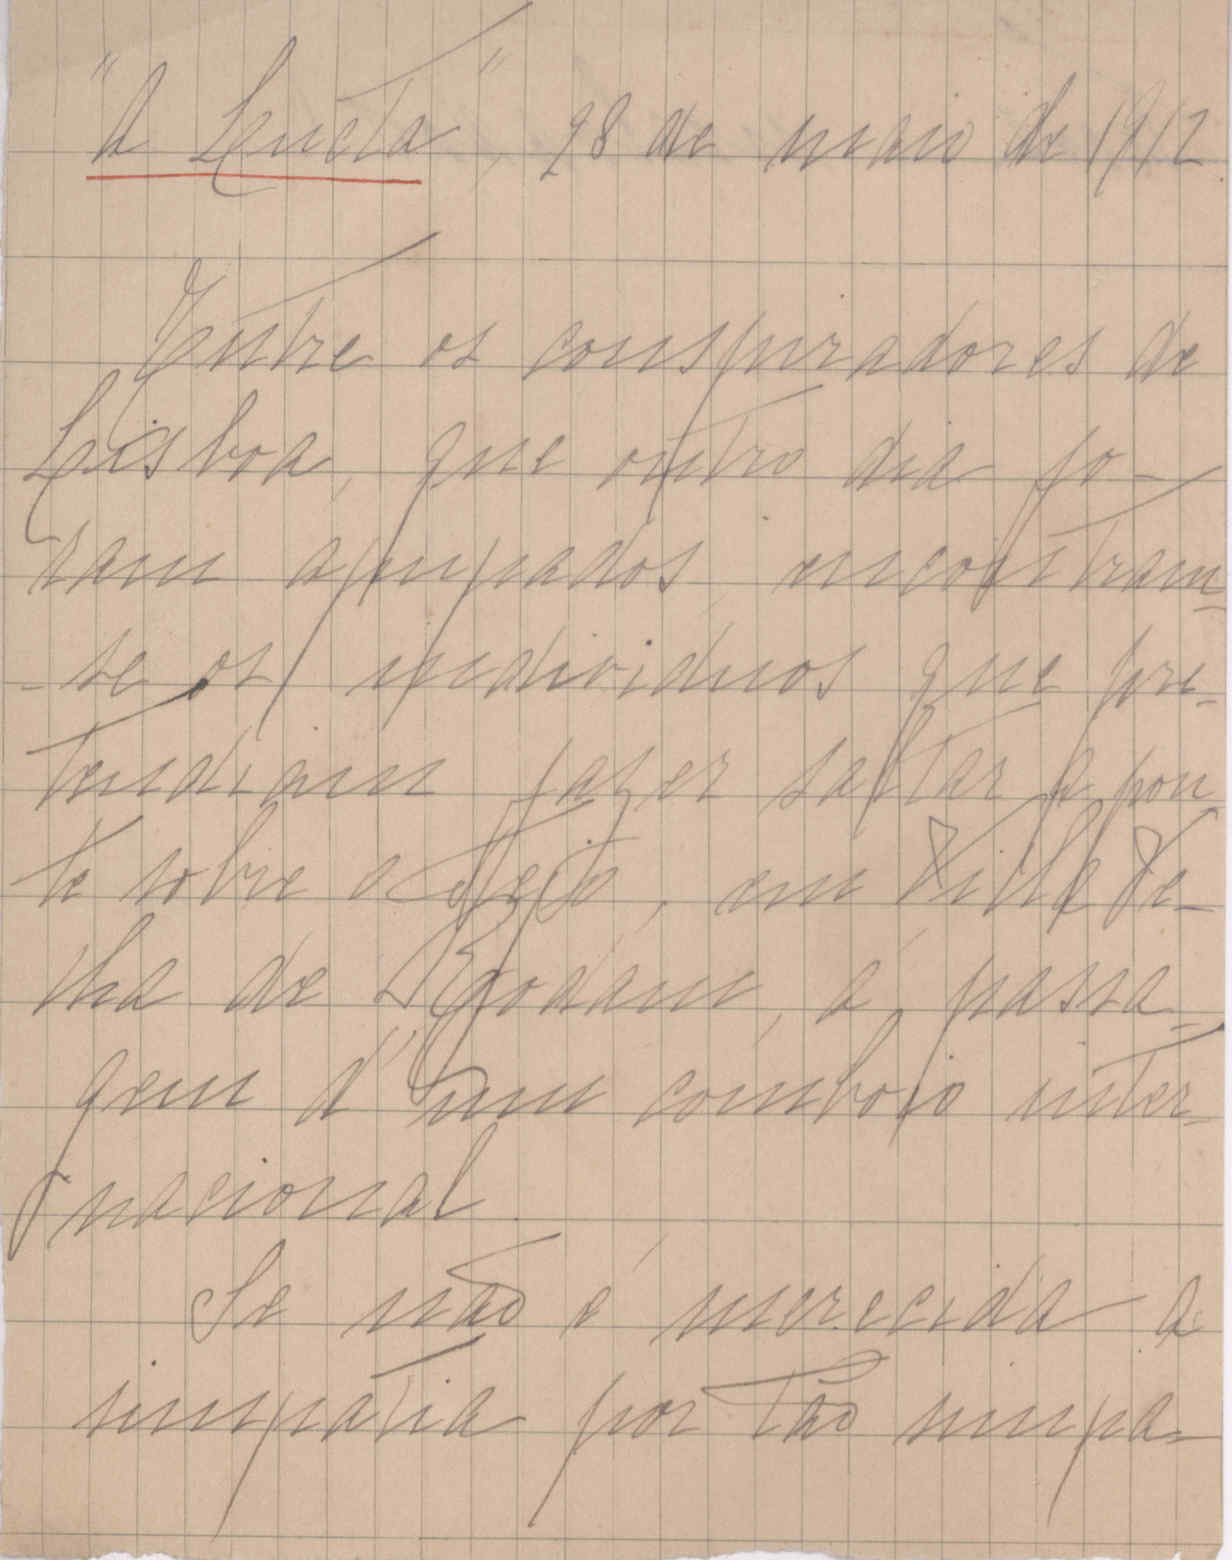 "A Lucta", 28 de maio de 1912.
Entre os conspiradores de
Lisboa, que outro dia fo-
ram apupados, encontram-
-se os individuos que pre-
tendiam fazer saltar a pon
te sobre o Tejo, em Villa Ve-
lha de Rodam, á passa-
gem d'um comboio inter-
nacional.
Se não é merecida a
simpatia por tão simpa-